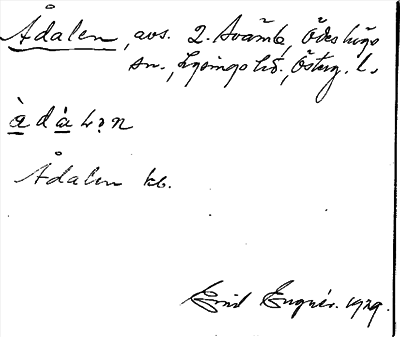 Ådalen, avs. 2. Svämb, Ödeshögs
sn., Lysings hd., Österg. l.
àdàLən
Ådalen kb.
Emil Engnér. 1929.